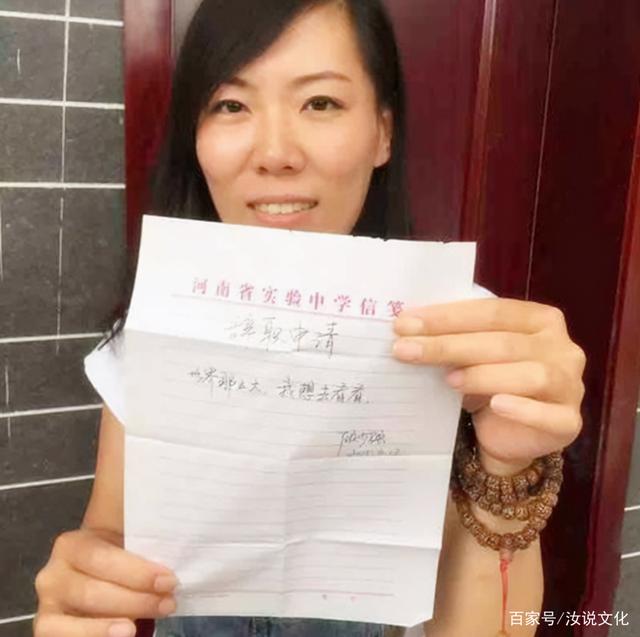 河南省实验中学信笺
辞职申请
世界那么大,我想去看看。
百家号/汝说文化